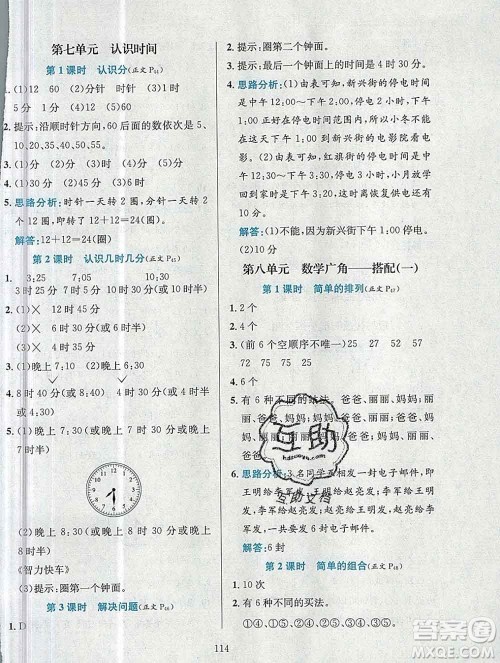 第七单元 认识时间
第1课时 认识分(正文P₆₄)
1. (1)12 60 (2)分针 时针 (3)1时
5分 (4)1 60
2. 提示:沿顺时针方向,60后面的数依次是5、
10、20、35、50、55。
3. (1)时 (2)分 (3)分 (4)分
4. 思路分析:时针一天转2圈,分针一天转
12+12=24(圈)。
解答:12+12=24(圈)
第2课时 认识几时几分(正文P₆₅)
1. 3;25 7;05 10;38
2. (1)× 4时30分(或4时半)
(2)× 6时30分(或6时半)
3. (1)晚上8;30 (2)晚上6;30
4. 8时40分(或8时30分)(或8时半)
5. (1)晚上7;30(或晚上7时30分或晚上
7时半)
(2)晚上8;30(或晚上8时30分或晚上
8时半)
《智力快车》
(3)提示:圈第一个钟面。
第3课时 解决问题(正文P₆₆)
1. D
2. 提示:圈第二个钟面。
3. 提示:最后一个钟面上的时间是10时。
4. 思路分析:(1)由表可知,新兴街的停电时间
是中午12:00~下午2:00,下午1时在
停电时间范围内,所以小冬不能在
下午1时到新兴街的电影院看电
影。(2)由表可知,红旗街的停电时间是
下午2:30~下午4:30,小月放学
回到家时是下午5时,此时高恢复供电还有
30分。
解答:(1)不能 (2)10分
第八单元 数学广角——搭配(一)
第1课时 简单的排列(正文P₆₇)
1. 2个
2. 4个
3. (前6个空顺序不唯一)25 27 52 57
72 75 25 72
4. 6个
5. 有6种不同的站法。爸爸、妈妈、丽丽;爸
6. 思路分析:3名同学互相发一封电子邮件,即
王明给李军发、王明给赵亮发;李军给王明
发、李军给赵亮发;赵亮给王明发、赵亮给李
军发。一共要发6封电子邮件。
解答:6封
第2课时 简单的组合(正文P₆₈)
1. 10次
2. 有6种不同的买法。
互助
hdzuowen.com
互助文档
114
作业精灵
MXQE.COM